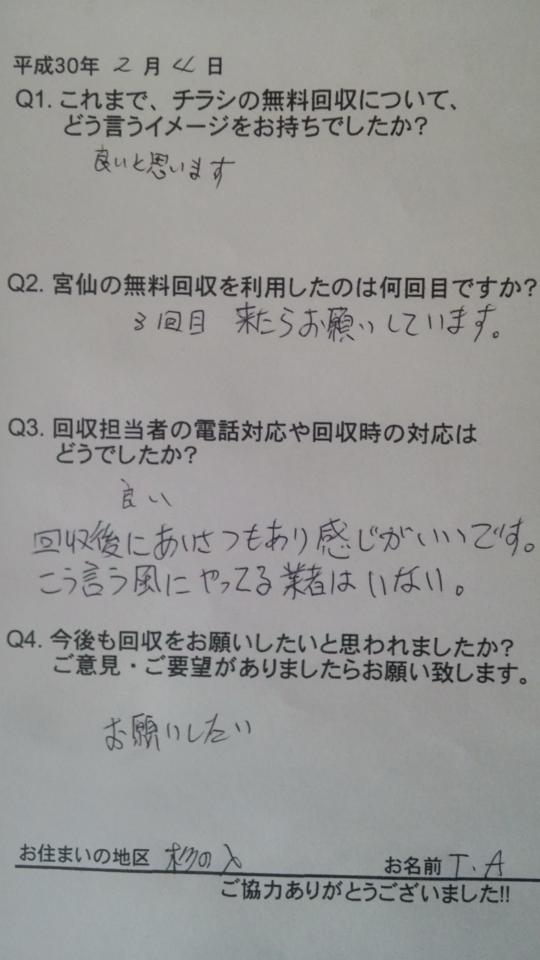 平成30年 2月 4日
Q1. これまで、チラシの無料回収について、
どう言うイメージをお持ちでしたか?
良いと思います
Q2. 宮仙の無料回収を利用したのは何回目ですか?
3回目 来たらお願いしています。
Q3. 回収担当者の電話対応や回収時の対応は
どうでしたか?
良い
回収後にあいさつもあり感じがいいです。
こう言う風にやってる業者はいない。
Q4. 今後も回収をお願いしたいと思われましたか?
ご意見・ご要望がありましたらお願い致します。
お願いしたい
お住まいの地区 杉の入 お名前 T.A
ご協力ありがとうございました!!